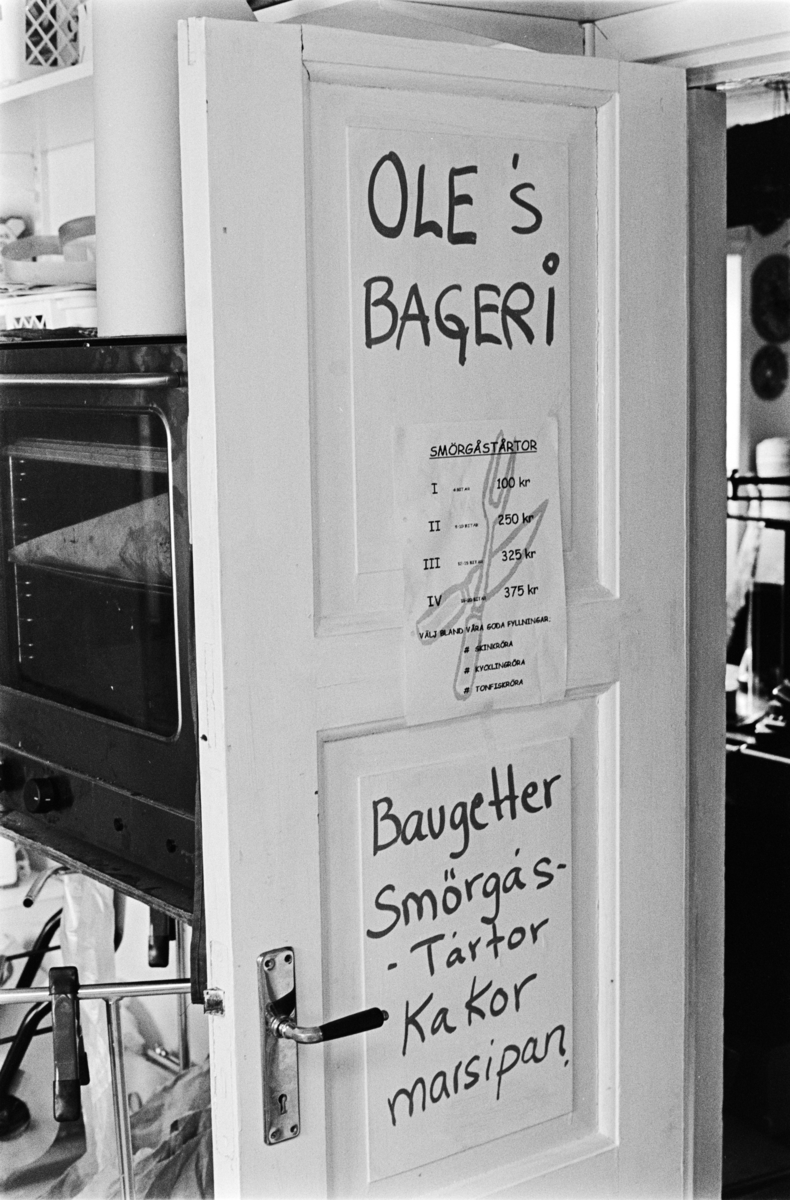 OLE'S
BAGERI
SMÖRGÅSTÅRTOR
I 100 kr
II 250 kr
III 325 kr
IV 375 kr
VÄLJ BLAND VÅRA GODA FYLLNINGAR:
# SKINKRÖRA
# KYCKLINGRÖRA
# TONFISKRÖRA
Baugetter
Smörgås-
-Tårtor
Kakor
marsipan.